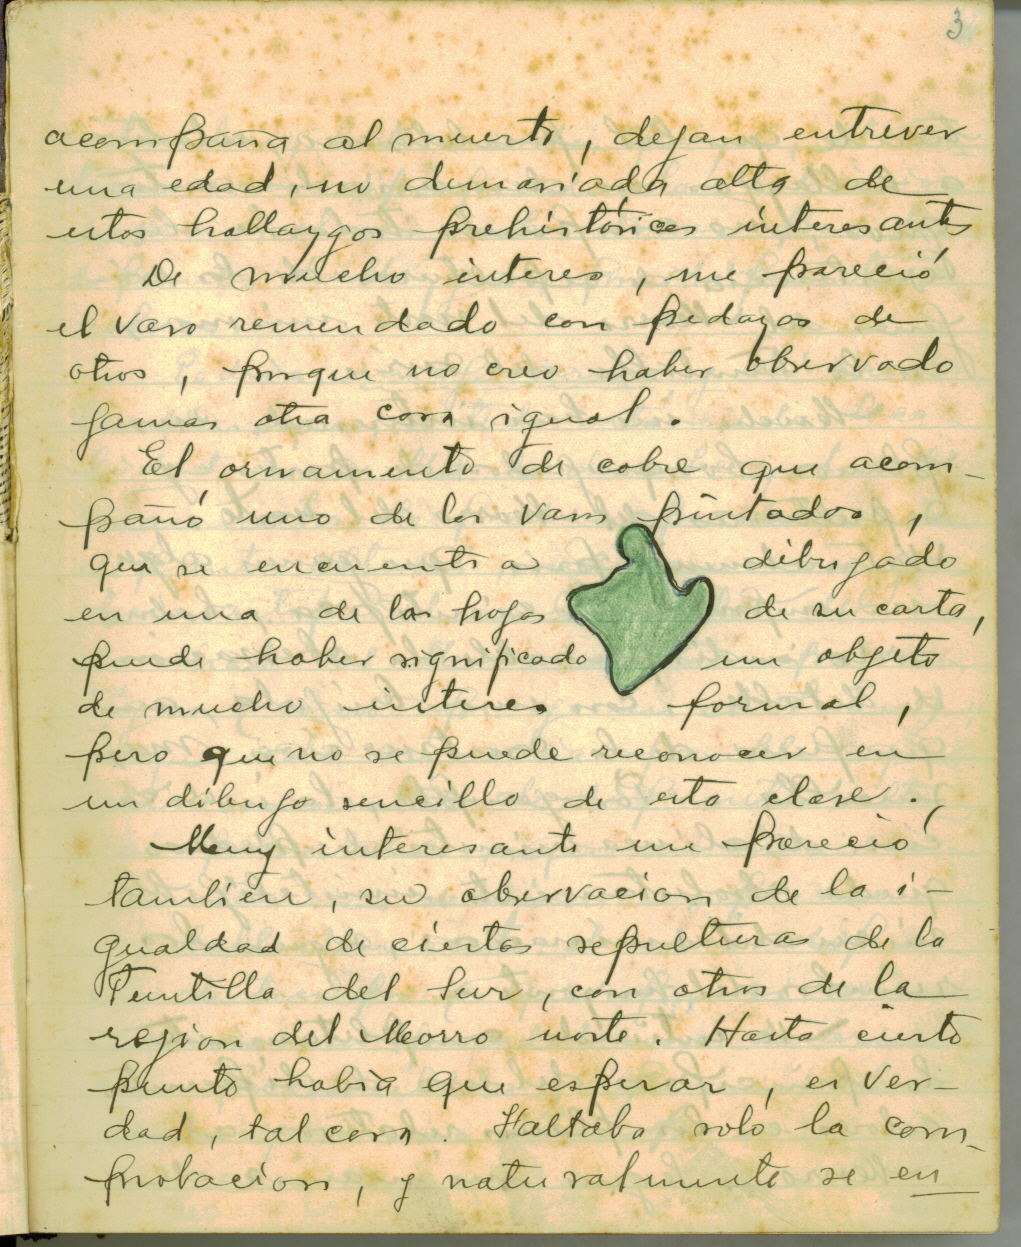 3
acompaña al muerto, dejan entrever
una edad, no demasiada alta de
estos hallazgos prehistóricos interesantes
De mucho interes, me pareció
el vaso remendado con pedazos de
otros, porque no creo haber observado
jamas otra cosa igual.
El ornamento de cobre que acom-
pañó uno de los vasos pintados,
que se encuentra dibujado
en una de las hojas de su carta,
puede haber significado un objeto
de mucho interes formal,
pero que no se puede reconocer en
un dibujo sencillo de esta clase.
Muy interesante me pareció
tambien, su observacion de la i-
gualdad de ciertas sepulturas de la
Puntilla del Sur, con otros de la
rejion del Morro norte. Hasta cierto
punto habia que esperar, es ver-
dad, tal cosa. Faltaba solo la com-
probacion, y naturalmente se en